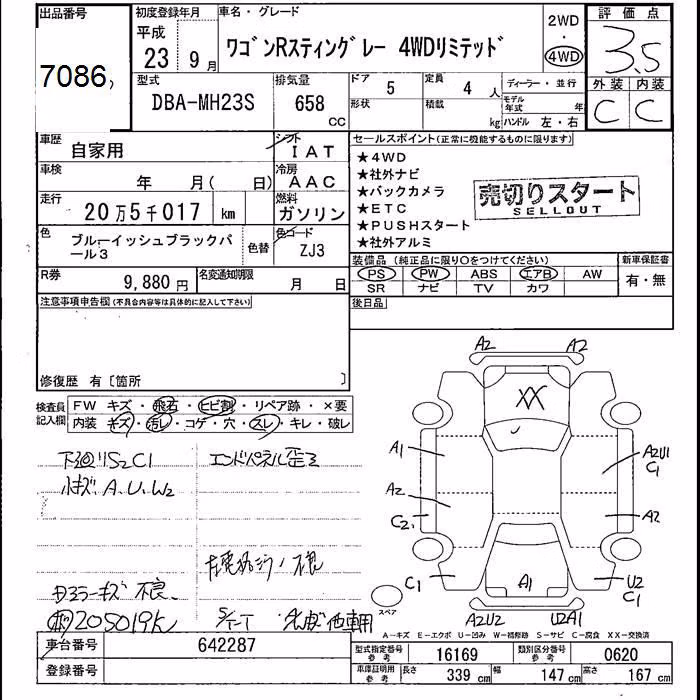 出品番号
7086
初度登録年月
平成
23年 9月
車名・グレード
ワゴンRスティングレー 4WDリミテッド
2WD
・
4WD
評価点
3.5
外装 内装
C C
型式
DBA-MH23S
排気量
658 CC
ドア 5
形状
定員 4 人
積載 kg
ディーラー・並行
モデル年式 年
ハンドル 左・右
車歴
自家用
シフト
IAT
車検
年 月( 日)
冷房
AAC
走行
20万5千017 km
燃料
ガソリン
色
ブルーイッシュブラックパール3
色替
色コード
ZJ3
R券
9,880円
名変通知期限
月 日
セールスポイント(正常に機能するものに限ります)
★4WD
★社外ナビ
★バックカメラ
★ETC
★PUSHスタート
★社外アルミ
売切りスタート
SELLOUT
装備品 (純正品に限り○をつけてください)
PS PW ABS エアB AW
SR ナビ TV カワ
新車保証書
有・無
後日品
注意事項申告欄(不具合内容等は具体的に記入して下さい)
修復歴 有〔箇所 〕
検査員記入欄
FW キズ・飛石・ヒビ割・リペア跡・×要
内装 キズ・汚レ・コゲ・穴・スレ・キレ・破レ
下廻りS2C1
小キズA.U.W2
エンドパネル歪ミ
左電格ミラー不良
205019K
車台番号 642287
登録番号
A2 A2
XX
A1
A2
C2
C1
A2U1
C1
A2
U2
C1
A1
A2U2 U2A1
スペア
A-キズ E-エクボ U-凹み W-補修跡 S-サビ C-腐食 XX-交換済
型式指定番号 参考 16169
類別区分番号 参考 0620
車庫証明用 参考 長さ 339 cm 幅 147 cm 高さ 167 cm